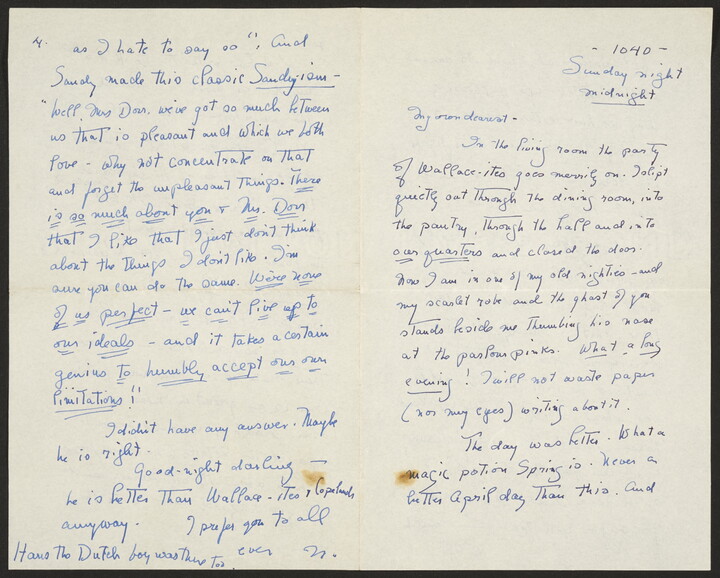 - 1040 -
Sunday night
midnight
My own dearest -
In the living room the party
of Wallace-ites goes merrily on. I slipt
quietly out through the dining room, into
the pantry, through the hall and into
our quarters and closed the door.
Now I am in one of my old nighties - and
my scarlet robe and the ghost of you
stands beside me thumbing his nose
at the parlour pinks. What a long
evening! I will not waste paper
(nor my eyes) writing about it.
The day was better. What a
magic potion Spring is. Never a
better April day than this. And
4.
as I hate to say so"; And
Sandy made this classic Sandy-ism -
"Well, Mrs Dorr, we've got so much between
us that is pleasant and which we both
love - why not concentrate on that
and forget the unpleasant things. There
is so much about you & Mr. Dorr
that I like that I just don't think
about the things I don't like. I'm
sure you can do the same. We're none
of us perfect - we can't live up to
our ideals - and it takes a certain
genius to humbly accept our own
limitations!"
I didn't have any answer. Maybe
he is right.
Good-night darling -
he is better than Wallace-ites & Copelands
anyway. I prefer you to all
Hans the Dutch boy was there too. ever